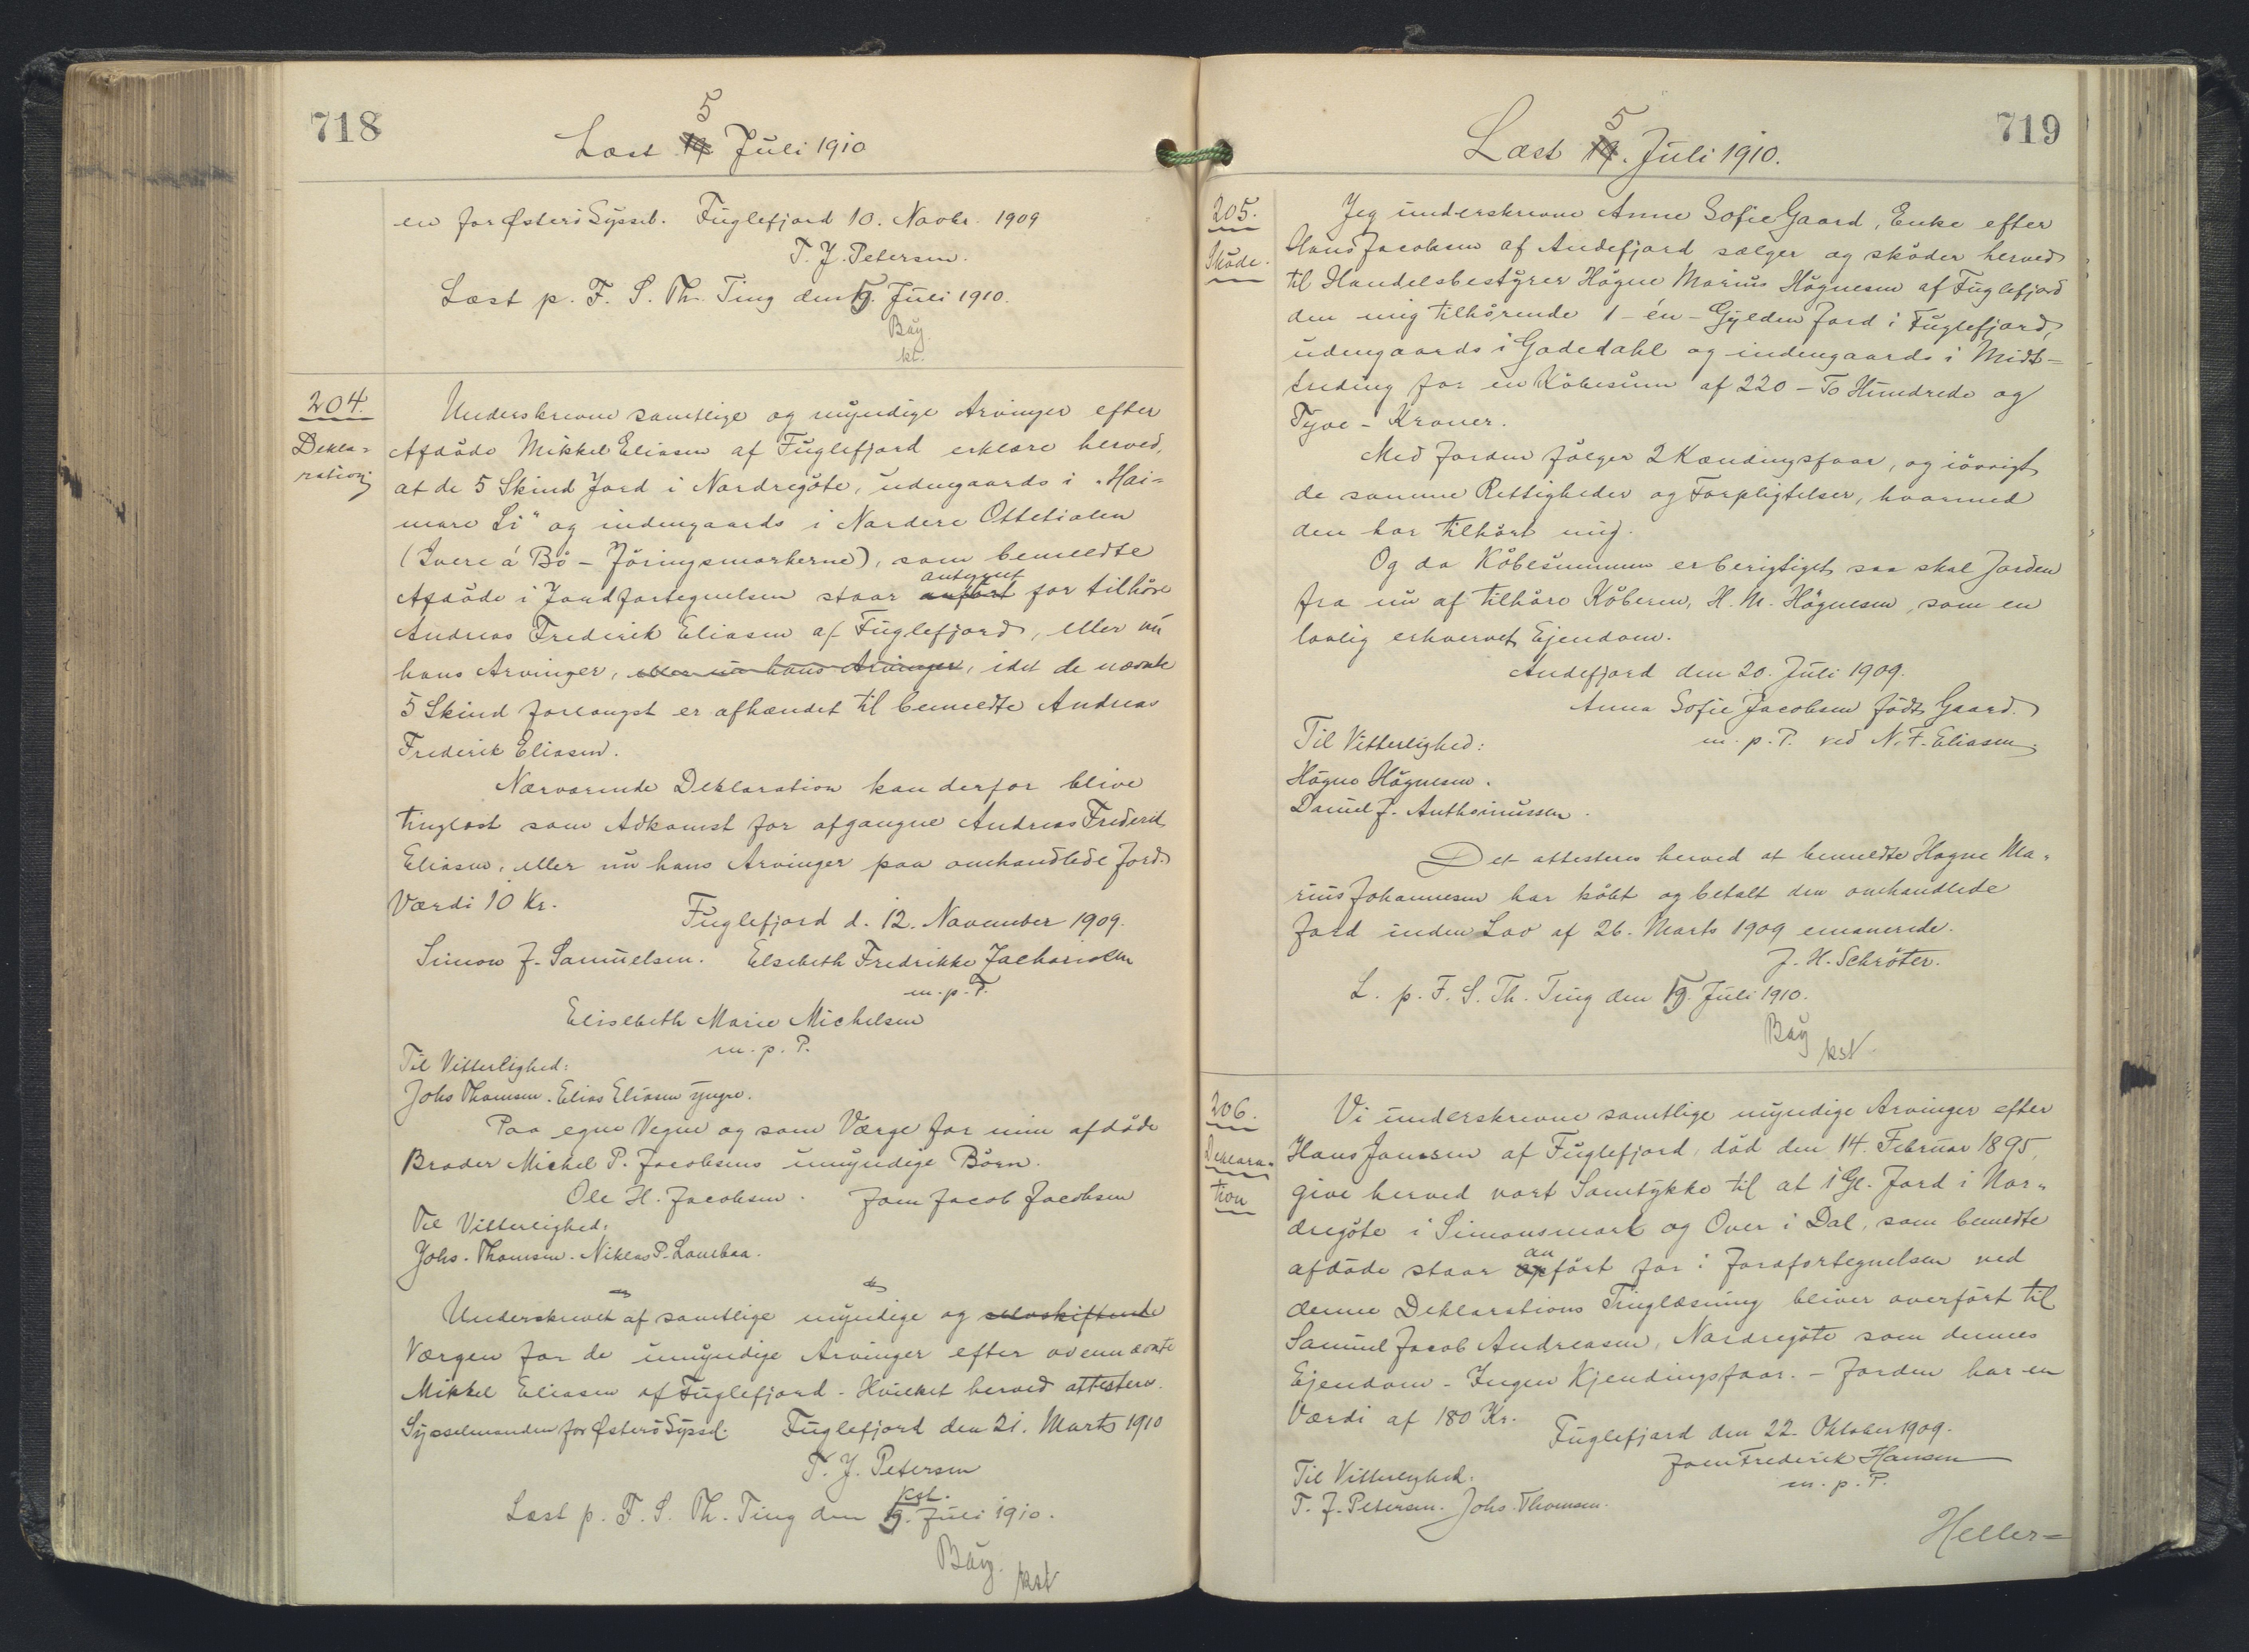 718
5
Læst 19 Juli 1910
en for Østerö Syssel. Fuglefjord 10. Novbr. 1909
T. J. Petersen.
Læst p. F. S. Th. Ting den 5. Juli 1910.
Bay
kt.
204.
Dekla=
ration
Underskrevne samtlige og myndige Arvinger efter
Afdöde Mikkel Eliasen af Fuglefjord erklære herved,
at de 5 Skind Jord i Nordregöte, udengaards i "Hai=
mare Li" og indengaards i Nordere Ottetialen
(Svere á Bö - Jöringsmorkerne), som bemeldte
antegnet
Afdöde i Jordfortegnelsen staar anfört for tilhöre
Andreas Frederik Eliasen af Fuglefjord, eller nu
hans Arvinger, eller nu hans Arvinger, idet de nævnte
5 Skind forlængst er afhændet til bemeldte Andreas
Frederik Eliasen.
Nærværende Deklaration kan derfor blive
tinglæst som Adkomst for afgangne Andreas Frederik
Eliasen, eller nu hans Arvinger paa omhandlede Jord.
Værdi 10 Kr.
Fuglefjord d. 12. November 1909.
Simon J. Samuelsen. Elsebeth Fredrikke Zachariasen
m. p. P.
Elisebeth Marie Michelsen
m. p. P.
Til Vitterlighed:
Johs Thomsen. Elias Eliasen yngre.
Paa egne Vegne og som Værge for min afdöde
Broder Michel P. Jacobsens umyndige Börn.
Ole H. Jacobsen. Joen Jacob Jacobsen
Til Vitterlighed:
Johs. Thomsen. Niklas P. Lambaa.
Underskrevet af samtlige myndige og selvskiftende
Værgen for de umyndige Arvinger efter ovennævnte
Mikkel Eliasen af Fuglefjord - Hvilket herved attesteres.
Sysselmanden for Österö Syssel. Fuglefjord den 21. Marts 1910
T. J. Petersen
kst.
Læst p. F. S. Th. Ting den 5. Juli 1910.
Bay.
kst
719
5
Læst 19. Juli 1910.
205.
Sköde.
Jeg underskrevne Anne Sofie Gaard, Enke efter
Hans Jacobsen af Andefjord sælger og sköder herved
til Handelsbestyrer Högne Marius Högnesen af Fuglefjord
den mig tilhörende 1 - én - Gylden Jord i Fuglefjord,
udengaards i Gadedahl og indengaards i Midt=
treding for en Köbesum af 220 - To Hundrede og
Tyve - Kroner.
Med Jorden fölger 2 Kændingsfaar, og iövrigt
de samme Rettigheder og Forpligtelser, hvormed
den har tilhört mig.
Og da Köbesummen er berigtiget saa skal Jorden
fra nu af tilhöre Köberen, H. M. Högnesen, som en
lovlig erhvervet Ejendom.
Andefjord den 20. Juli 1909.
Anna Sofie Jacobsen födt Gaard.
m. p. P. ved N. F. Eliasen.
Til Vitterlighed:
Högne Högnesen.
Daniel J. Anthoniussen.
Det attesteres herved at bemeldte Hogne Ma=
rius Johannesen har köbt og betalt den omhandlede
Jord inden Lov af 26. Marts 1909 emanerede.
J. H. Schröter.
L. p. F. S. Th. Ting den 5. Juli 1910.
Bay
kst.
206.
Deklara=
tion
Vi underskrevne samtlige myndige Arvinger efter
Hans Joensen af Fuglefjord, död den 14. Februar 1895,
give herved vort Samtykke til at 1 Gl. Jord i Nor=
dregöte i Simonsmork og Over i Dal, som bemeldte
an
afdöde staar opfört for i Jordfortegnelsen ved
denne Deklarations Tinglæsning bliver overfört til
Samuel Jacob Andreasen, Nordregöte som dennes
Ejendom - Ingen Kjendingsfaar. - Jorden har en
Værdi af 180 Kr.
Fuglefjord den 22. Oktober 1909.
Joen Frederik Hansen
m. p. P.
Til Vitterlighed.
T. J. Petersen. Johs. Thomsen.
Heller=